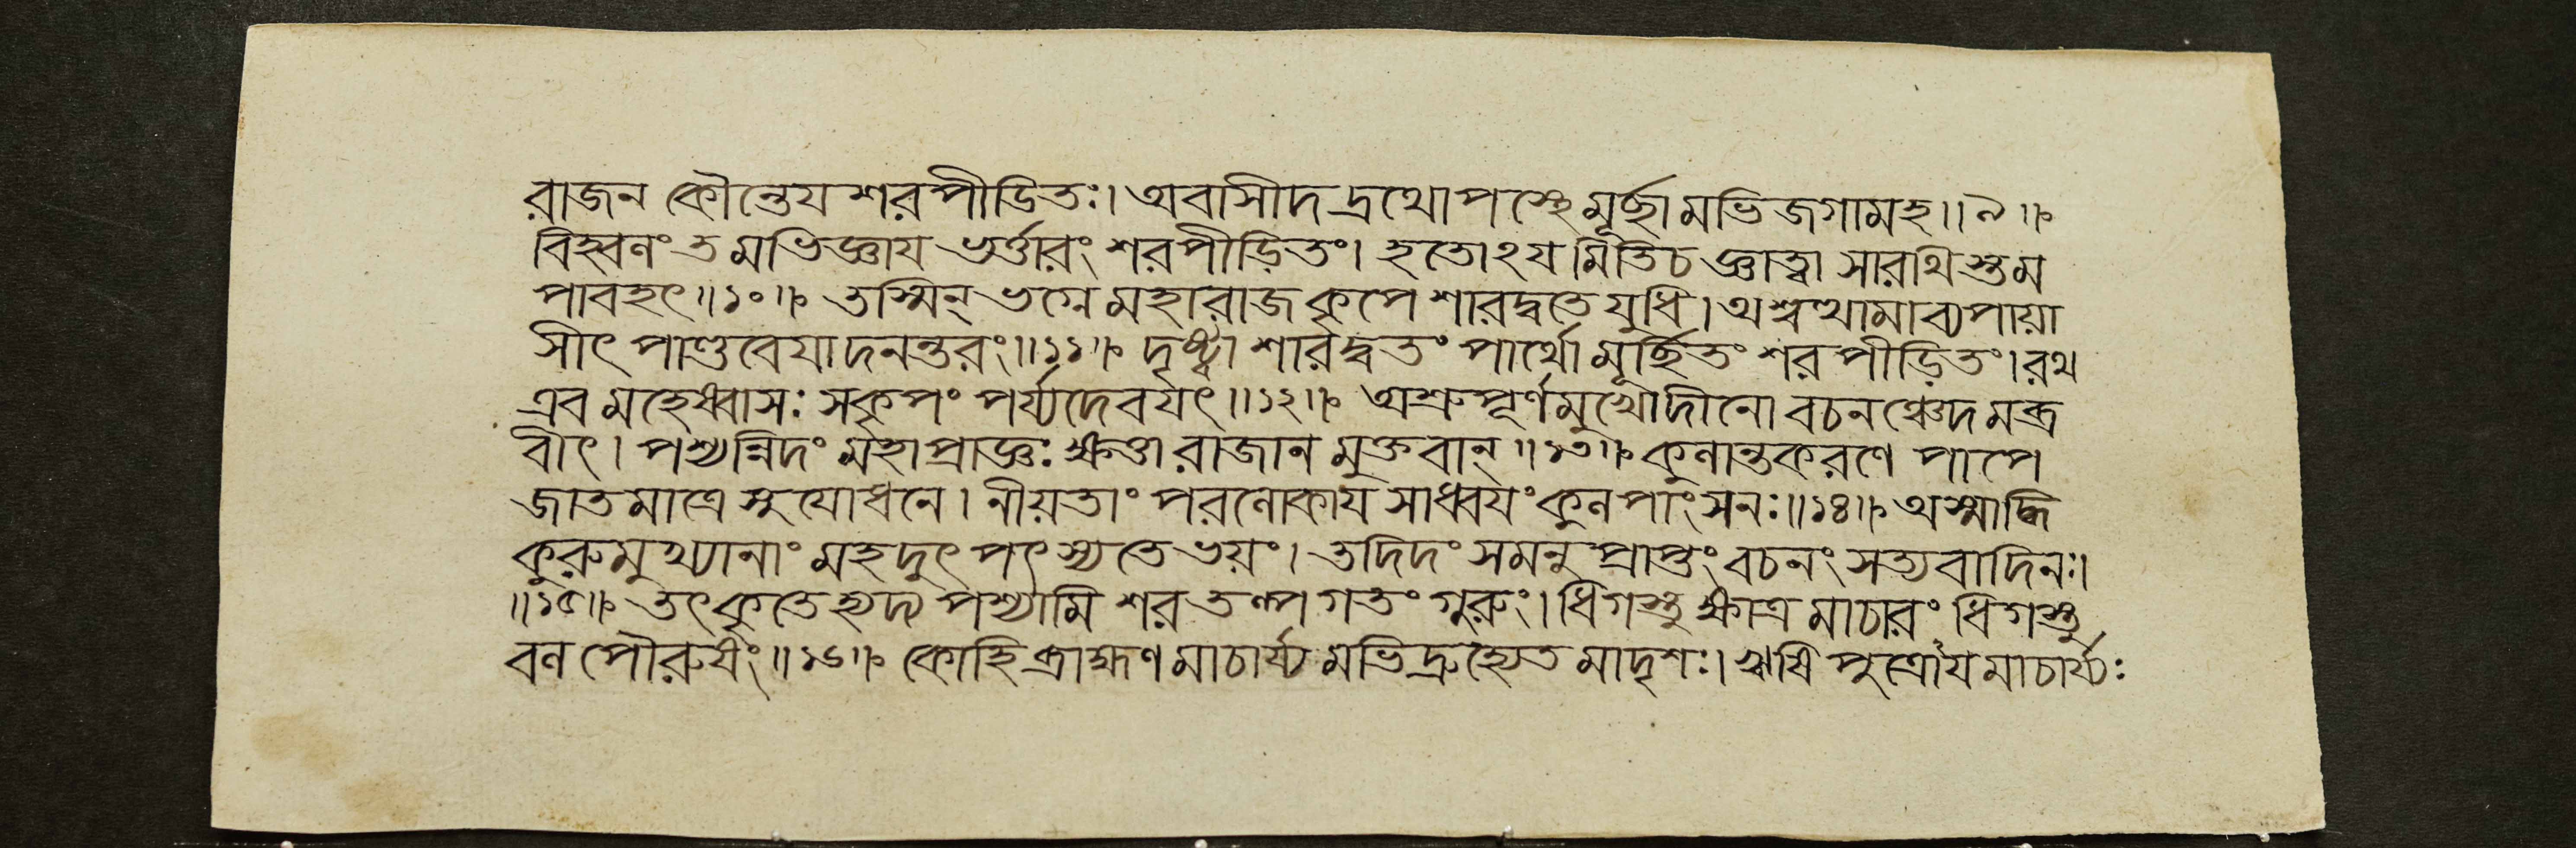 রাজন কৌন্তেয শরপীডিতঃ। অবাসীদদ্রথোপস্থেমূর্চ্ছামভিজগামহ॥৯॥
বিহ্বলং তমভিজ্ঞায ভর্ত্তারং শরপীড়িতং। হতোঽযমিতিচ জ্ঞাত্বা সারথিস্তম
পাবহৎ॥১০॥ তস্মিন্ ভগ্নেমহারাজ কৃপে শারদ্বতে যুধি। অশ্বত্থামাব্যপায়া
সীৎ পাণ্ডবেযাদনন্তরং॥১১॥ দৃষ্ট্বা শারদ্বতং পার্থোমূর্চ্ছিতং শরপীড়িতং। রথ
এব মহেষ্বাসঃ সকৃপং পর্য্যদেবযৎ॥১২॥ অশ্রুপূর্ণমুখোদীনো বচনঞ্চেদমব্র
বীৎ। পশ্যন্নিদং মহাপ্রাজ্ঞঃ ক্ষত্তা রাজানমুক্তবান্॥১৩॥ কুলান্তকরণে পাপে
জাতমাত্রে সুযোধনে। নীয়তাং পরলোকায সাধ্বযং কুলপাংসনঃ॥১৪॥ অস্মাদ্ধি
কুরুমুখ্যানাং মহদুৎপৎস্যতে ভয়ং। তদিদং সমনুপ্রাপ্তং বচনং সত্যবাদিনঃ।
॥১৫॥ তৎকৃতে হ্যদ্য পশ্যামি শরতল্পগতং গুরুং। ধিগস্তু ক্ষাত্রমাচারং ধিগস্তু
বল পৌরুষং॥১৬॥ কোহি ব্রাহ্মণমাচার্য্যমভিদ্রুহ্যেত মাদৃশঃ। ঋষিপুত্রোযমাচার্য্যঃ